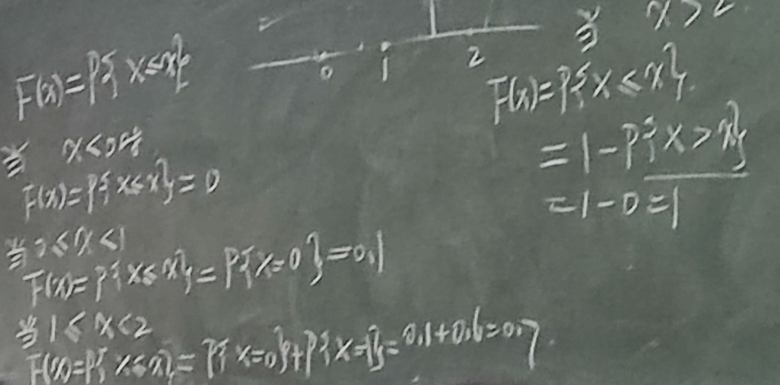 F(x)=P{X≤x}
当 x<0时
F(x)=P{X≤x}=0
当0≤x<1
F(x)=P{X≤x}=P{X=0}=0.1
当1≤x<2
F(x)=P{X≤x}=P{X=0}+P{X=1}=0.1+0.6=0.7
0 1 2
当 x>2
F(x)=P{X≤x}
=1-P{X>x}
=1-0=1